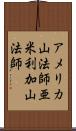 アメリカ
山法師亜
米利加山
法師